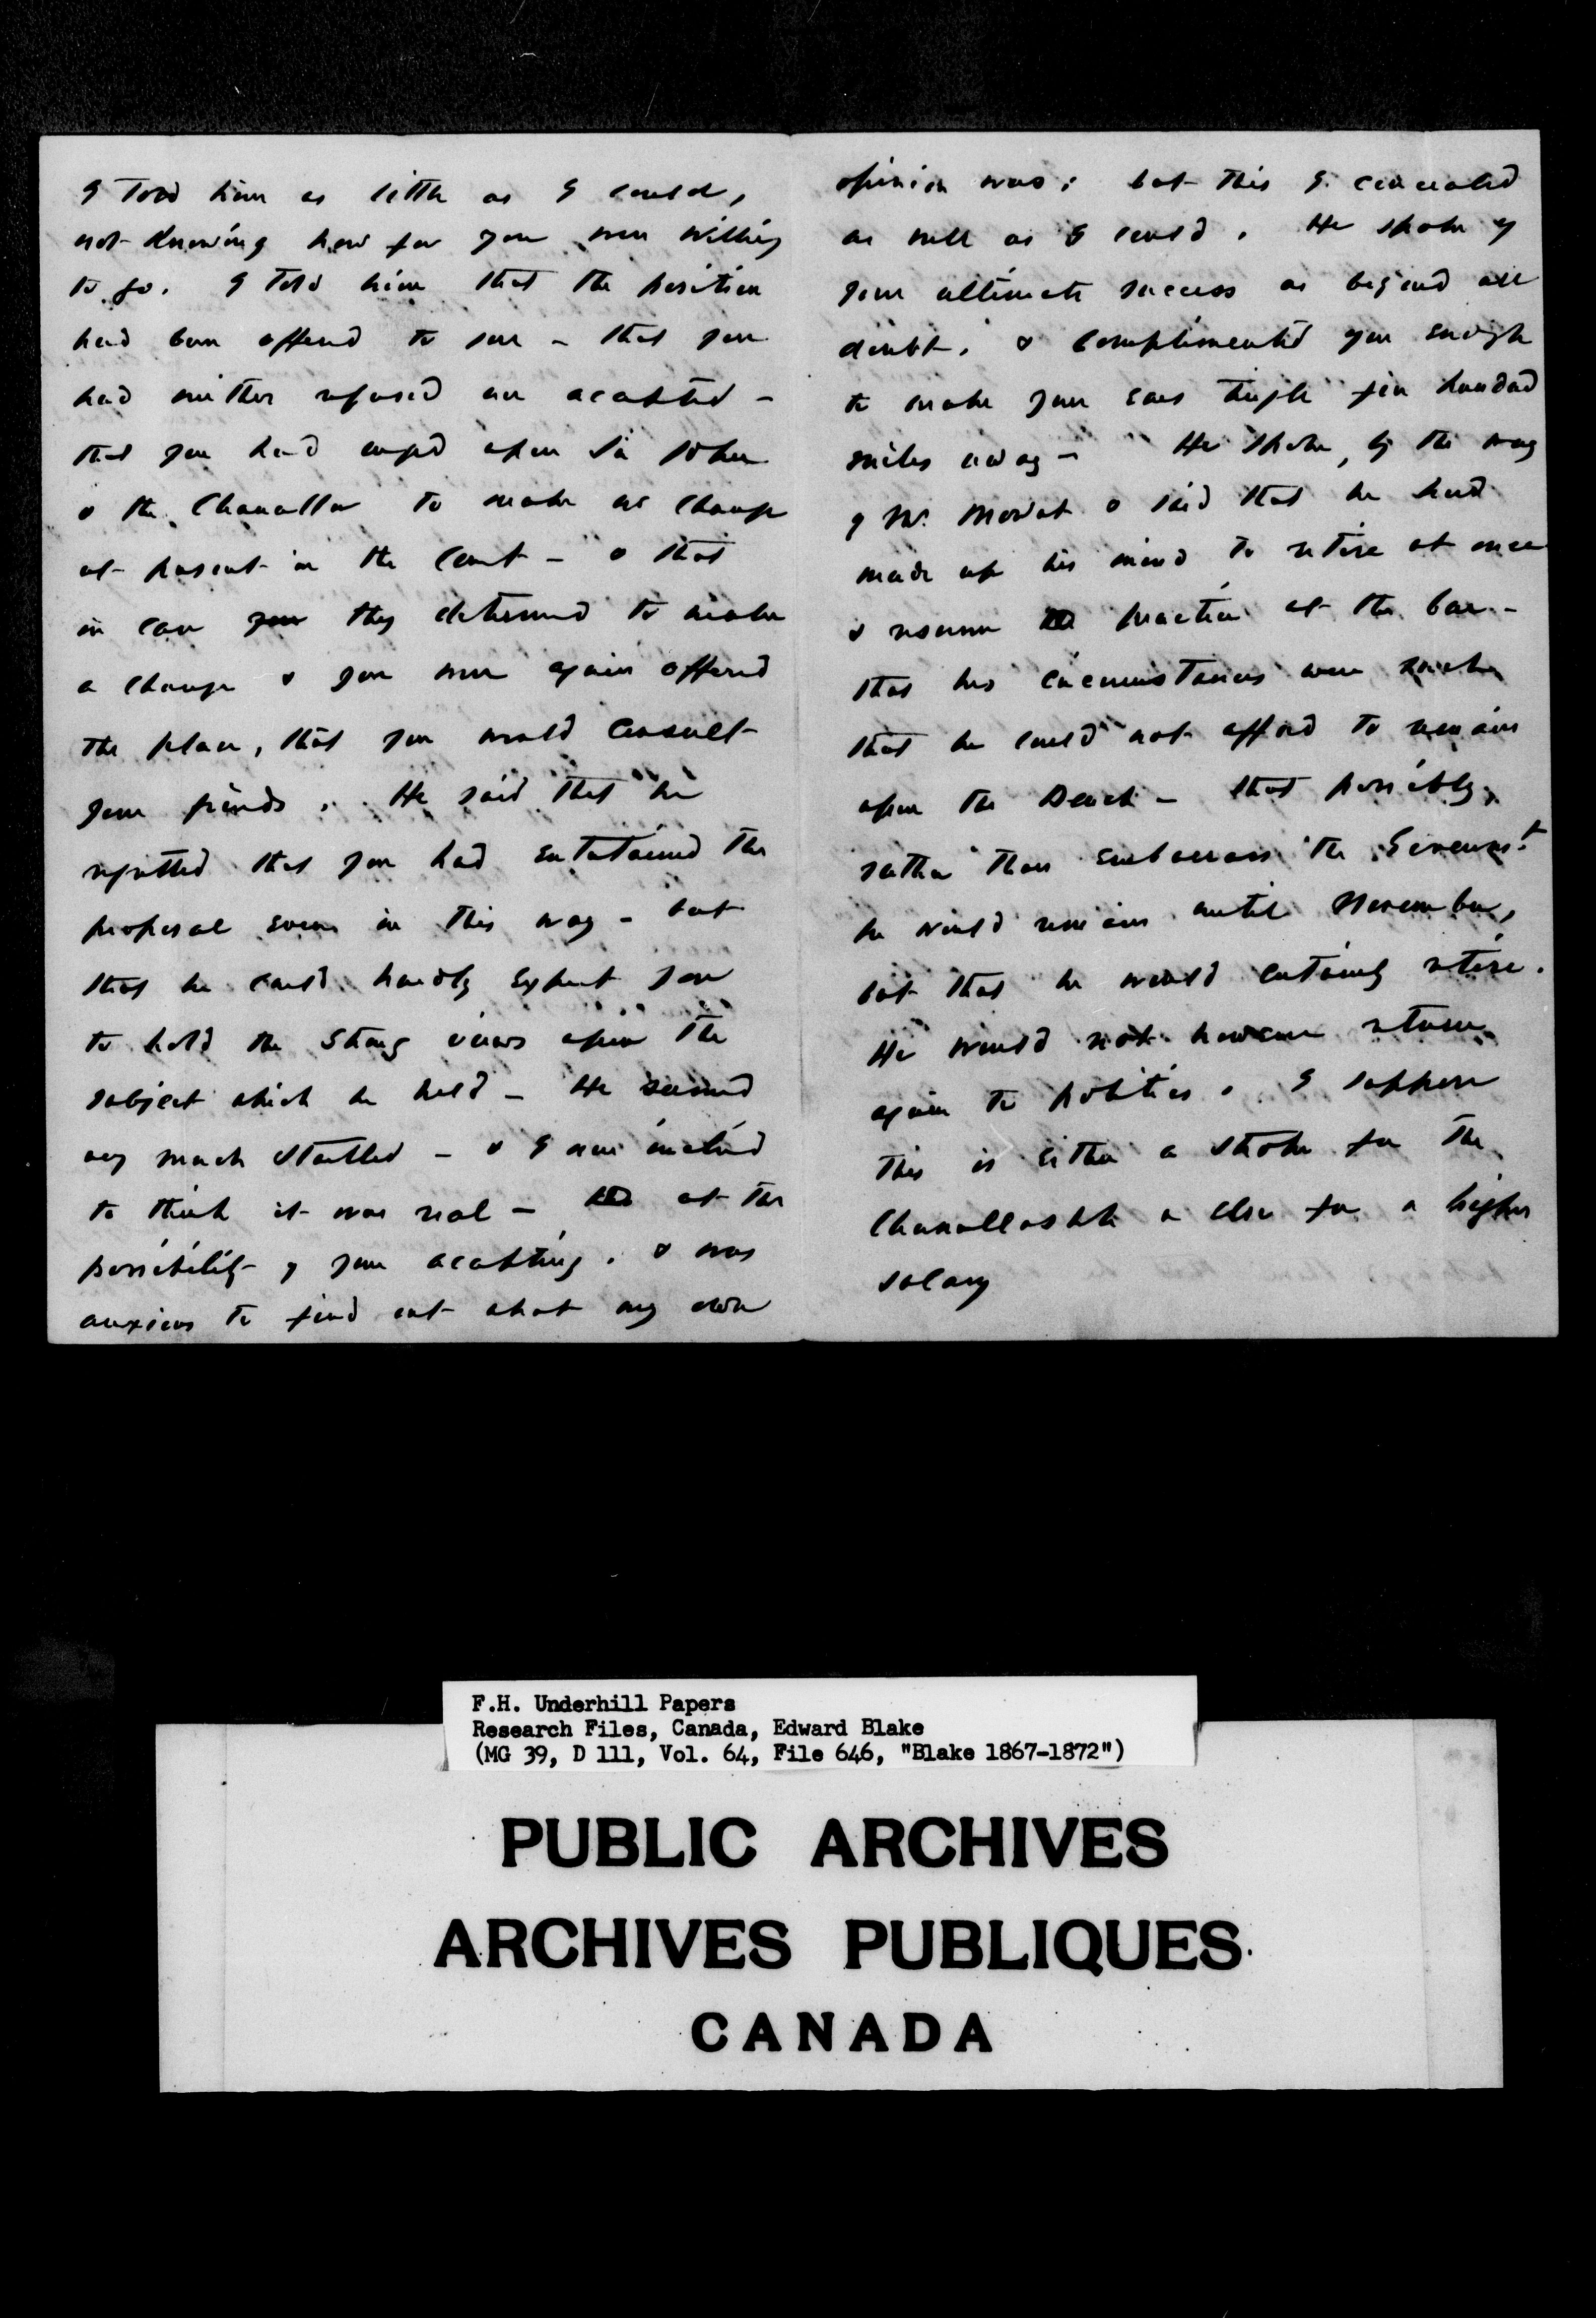 I told him as little as I could,
not knowing how far you were willing
to go. I told him that the position
had been offered to you – that you
had neither refused nor accepted –
that you had urged upon Sir John
& the Chancellor to make no change
at present in the Court – & that
in case you they determined to make
a change & you were again offered
the place, that you would consult
your friends. He said that he
regretted that you had entertained the
proposal even in this way – but
that he could hardly expect you
to hold the strong views upon the
subject which he held – He seemed
very much startled – & I am inclined
to think it was real – at the
possibility of your accepting. & was
anxious to find out what my own
opinion was: but this I concealed
as well as I could. He spoke of
your ultimate success as beyond all
doubt. & complimented you enough
to make your ears tingle five hundred
miles away – He spoke, by the way
of Mr. Mowat & said that he had
made up his mind to retire at once
& resume practice at the bar –
that his circumstances were such
that he could not afford to remain
upon the Bench – that possibly,
rather than embarrass the Governmt
he would remain until November,
but that he would certainly retire.
He would not however return
again to politics. I suppose
this is either a stroke for the
Chancellorship or else for a higher
salary
F.H. Underhill Papers
Research Files, Canada, Edward Blake
(MG 39, D 111, Vol. 64, File 646, "Blake 1867-1872")
PUBLIC ARCHIVES
ARCHIVES PUBLIQUES
CANADA